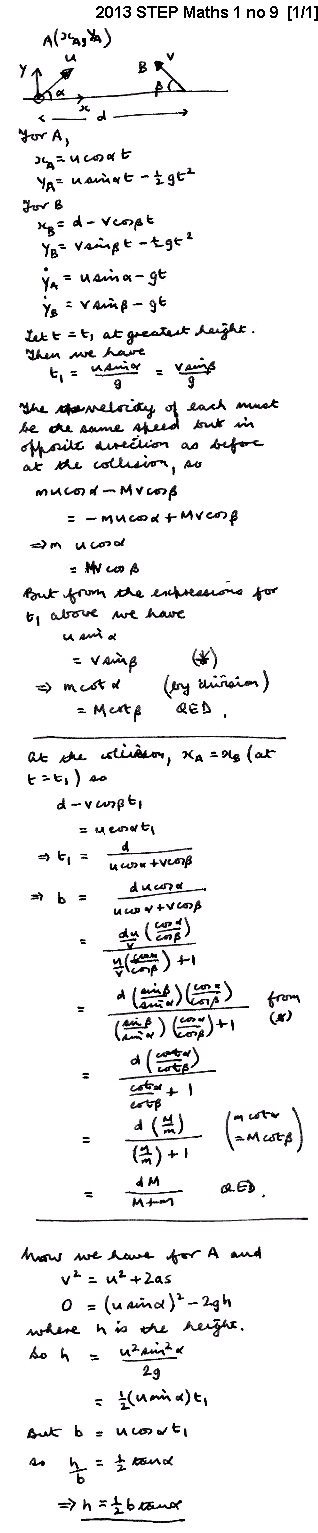 2013 STEP Maths 1 no 9 [1/1]
A(x_A, y_A)
u
B
v
y
α
β
x
d
For A,
x_A = u cosα t
y_A = u sinα t - ½gt²
For B
x_B = d - v cosβ t
y_B = v sinβ t - ½gt²
ẏ_A = u sinα - gt
ẏ_B = v sinβ - gt
Let t = t₁ at greatest height.
Then we have
t₁ = u sinα / g = v sinβ / g
The velocity of each must
be the same speed but in
opposite direction as before
at the collision, so
mu cosα - Mv cosβ
= -mu cosα + Mv cosβ
⇒ m u cosα
= Mv cosβ
But from the expressions for
t₁ above we have
u sinα
= v sinβ (*)
⇒ m cotα (by division)
= M cotβ QED.
At the collision, x_A = x_B (at
t = t₁) so
d - v cosβ t₁
= u cosα t₁
⇒ t₁ = d / (u cosα + v cosβ)
⇒ b = d u cosα / (u cosα + v cosβ)
= (du/v)(cosα/cosβ) / ((u/v)(cosα/cosβ) + 1)
= d(sinβ/sinα)(cosα/cosβ) / ((sinβ/sinα)(cosα/cosβ) + 1) from (*)
= d(cotα/cotβ) / (cotα/cotβ + 1)
= d(M/m) / ((M/m) + 1) (m cotα = M cotβ)
= dM / (M+m) QED.
Now we have for A and
v² = u² + 2as
0 = (u sinα)² - 2gh
where h is the height.
So h = u² sin²α / 2g
= ½(u sinα)t₁
But b = u cosα t₁
so h/b = ½ tanα
⇒ h = ½ b tanα